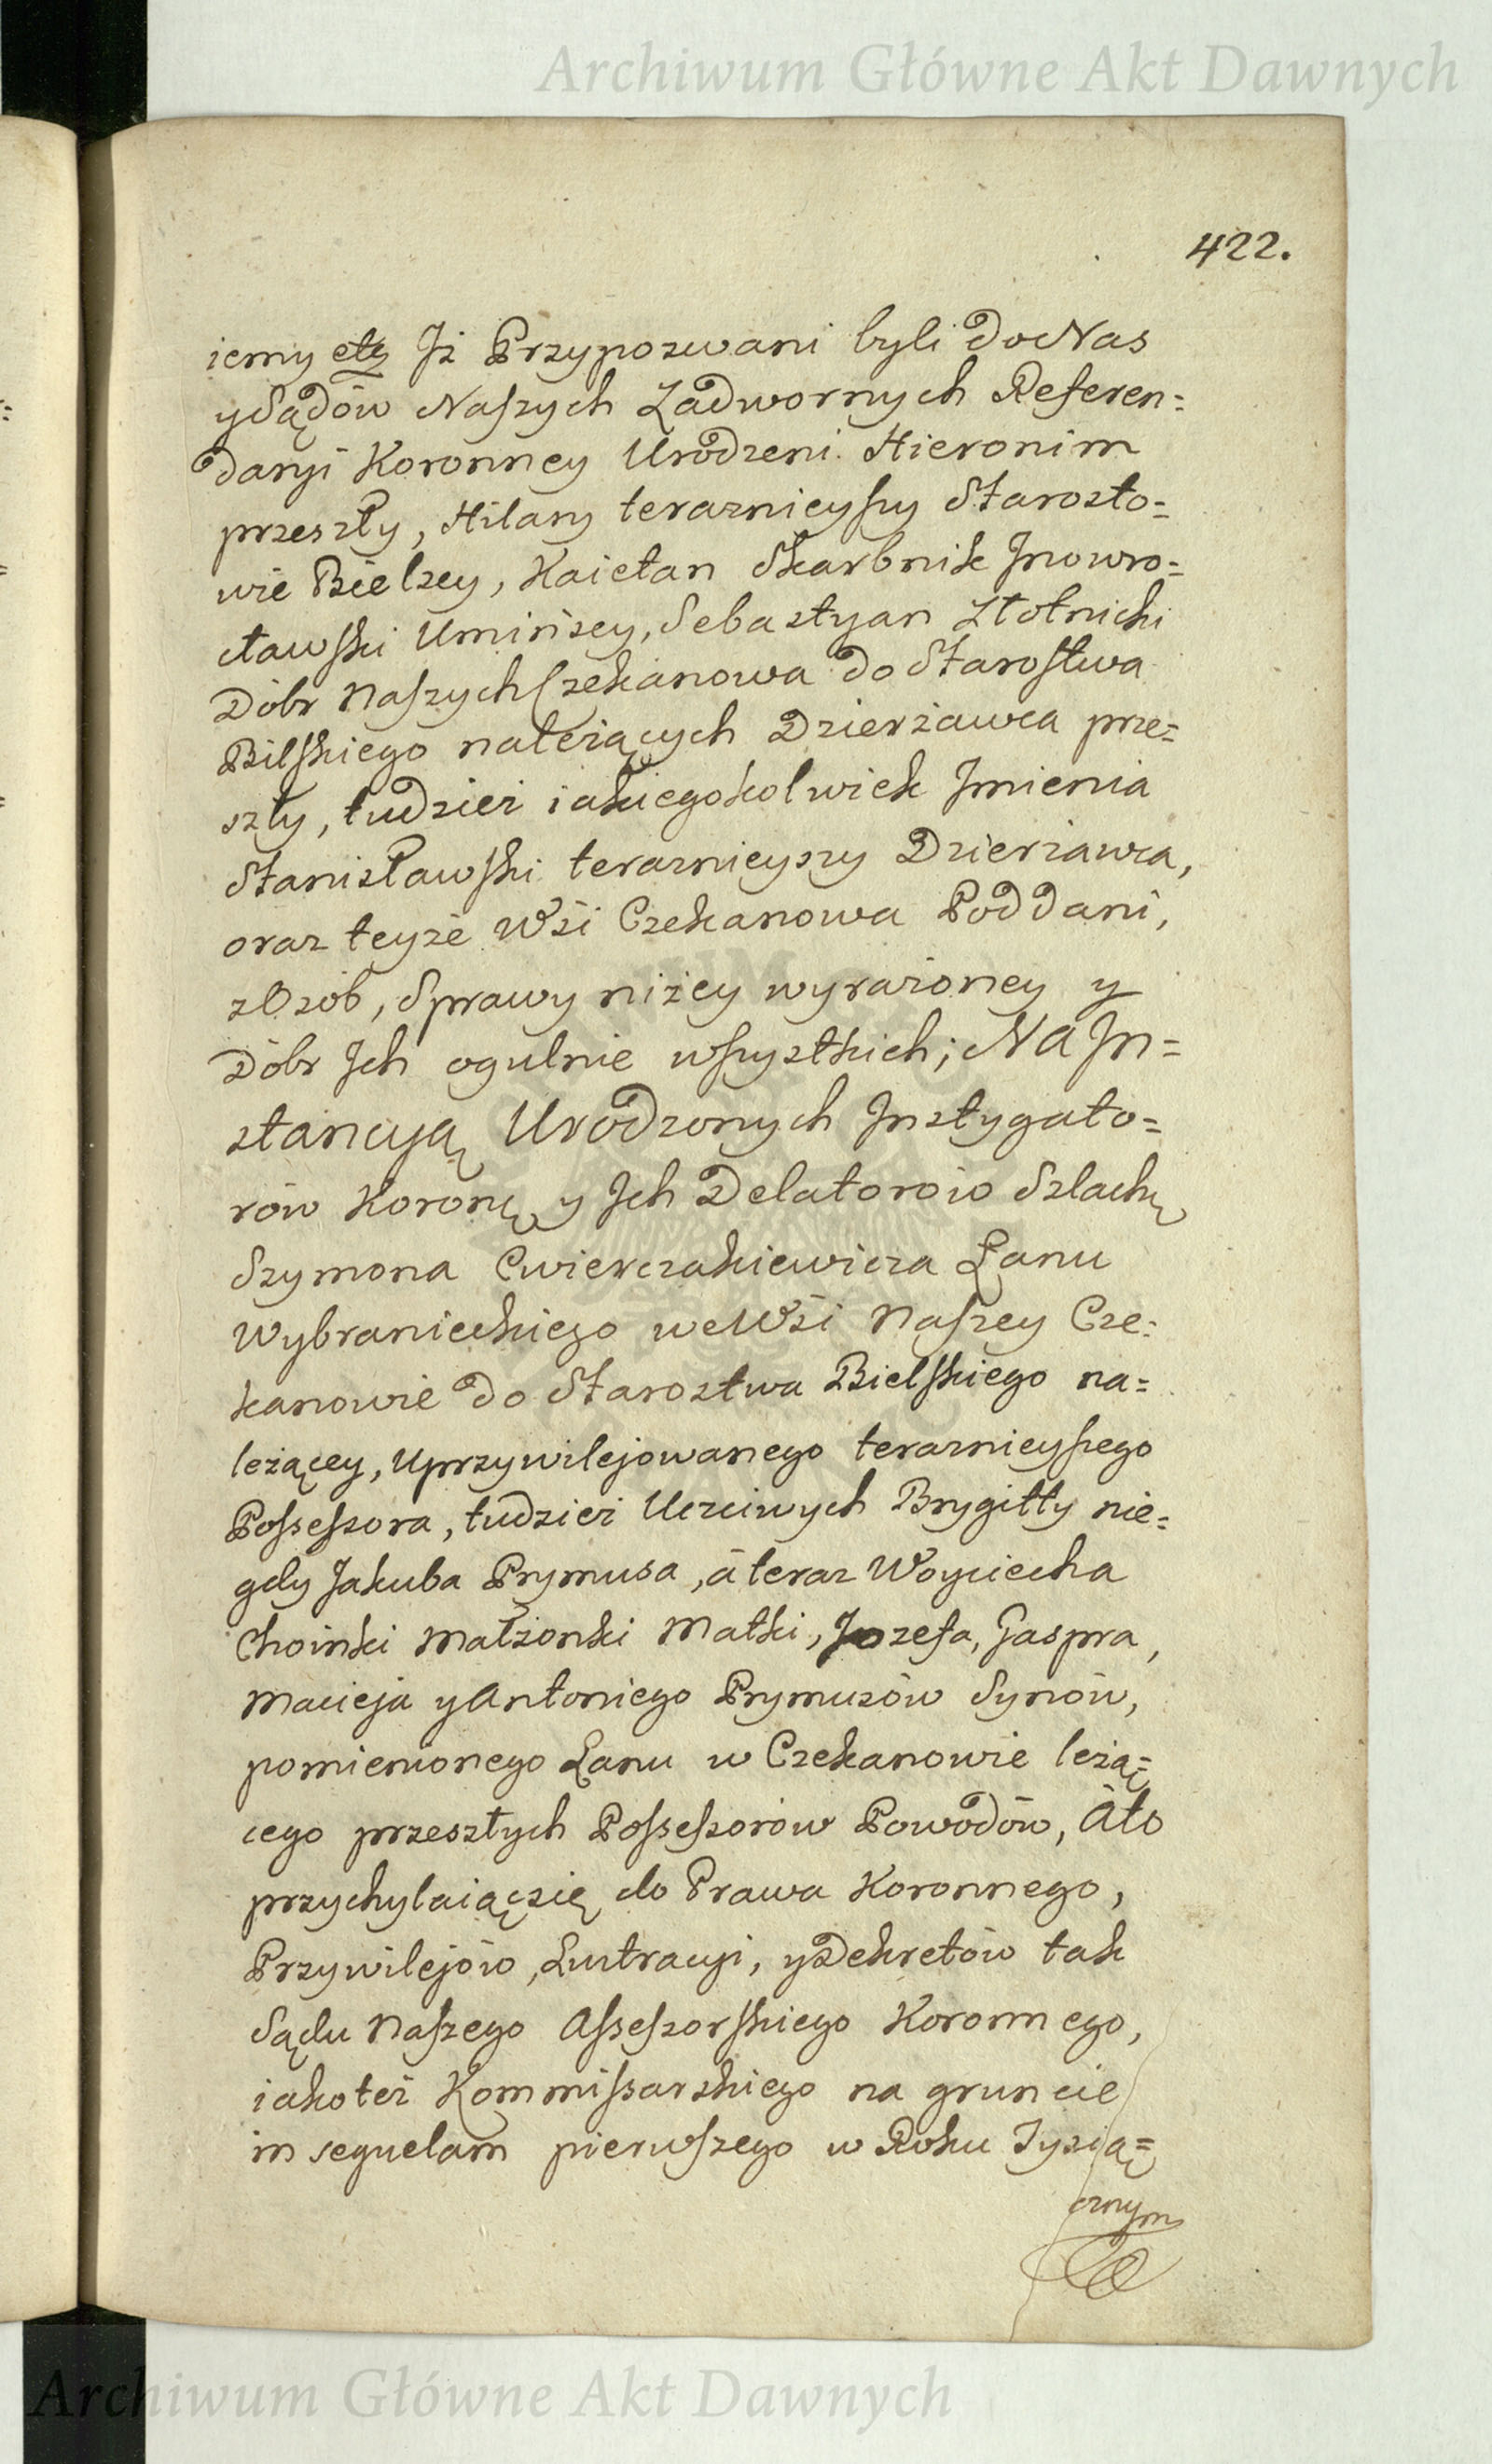 Archiwum Główne Akt Dawnych
422.
iemy etc Jż Przypozwani byli do Nas
y Sądów Naszych Zadwornych Referen=
daryi Koronney Urodzeni Hieronim
przeszły, Hilary teraznieyszy Starosto=
wie Bielscy, Kaietan Skarbnik Jnowro=
cławski Umińscy, Sebastyan Złotnicki
Dóbr Naszych Czekanowa do Starostwa
Bilskiego należących Dzierżawca prze=
szły, tudzież iakiegokolwiek Jmienia
Stanisławski teraznieyszy Dzierżawca,
oraz teyże Wśi Czekanowa Poddani,
z Osób, Sprawy niżey wyrażoney y
Dóbr Jch ogulnie wszystkich; Na Jn=
stancyą Urodzonych Jnstygato=
rów Koronę y Jch Delatorów Szlachę
Szymona Cwierczakiewicza Łanu
Wybranieckiego we Wśi Naszey Cze=
kanowie do Starostwa Bielskiego na=
leżącey, Uprzywilejowanego teraznieyszego
Possessora, tudzież Uczciwych Brygitty nie=
gdy Jakuba Prymusa, á teraz Woyciecha
Choinki Małżonki Matki, Jozefa, Gaspra,
Macieja y Antoniego Prymusów Synów,
pomienionego Łanu w Czekanowie leżą=
cego przeszłych Possessorów Powodów, Áto
przychylaiąc się do Prawa Koronnego,
Przywilejów, Lustracyi, y Dekretów tak
Sądu Naszego Assessorskiego Koronnego,
iakoteż Kommissarskiego na gruncie
in sequelam pierwszego w Roku Tysią=
cznym
Archiwum Główne Akt Dawnych